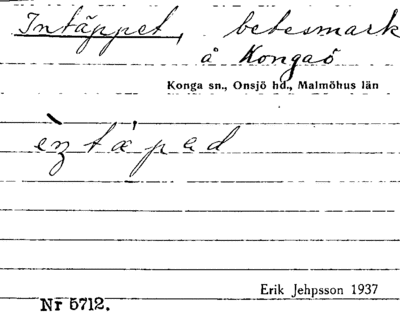 Intäppet, betesmark
å Kongaö
Konga sn., Onsjö hd., Malmöhus län
èntæ'pəd
Erik Jehpsson 1937
Nr 5712.